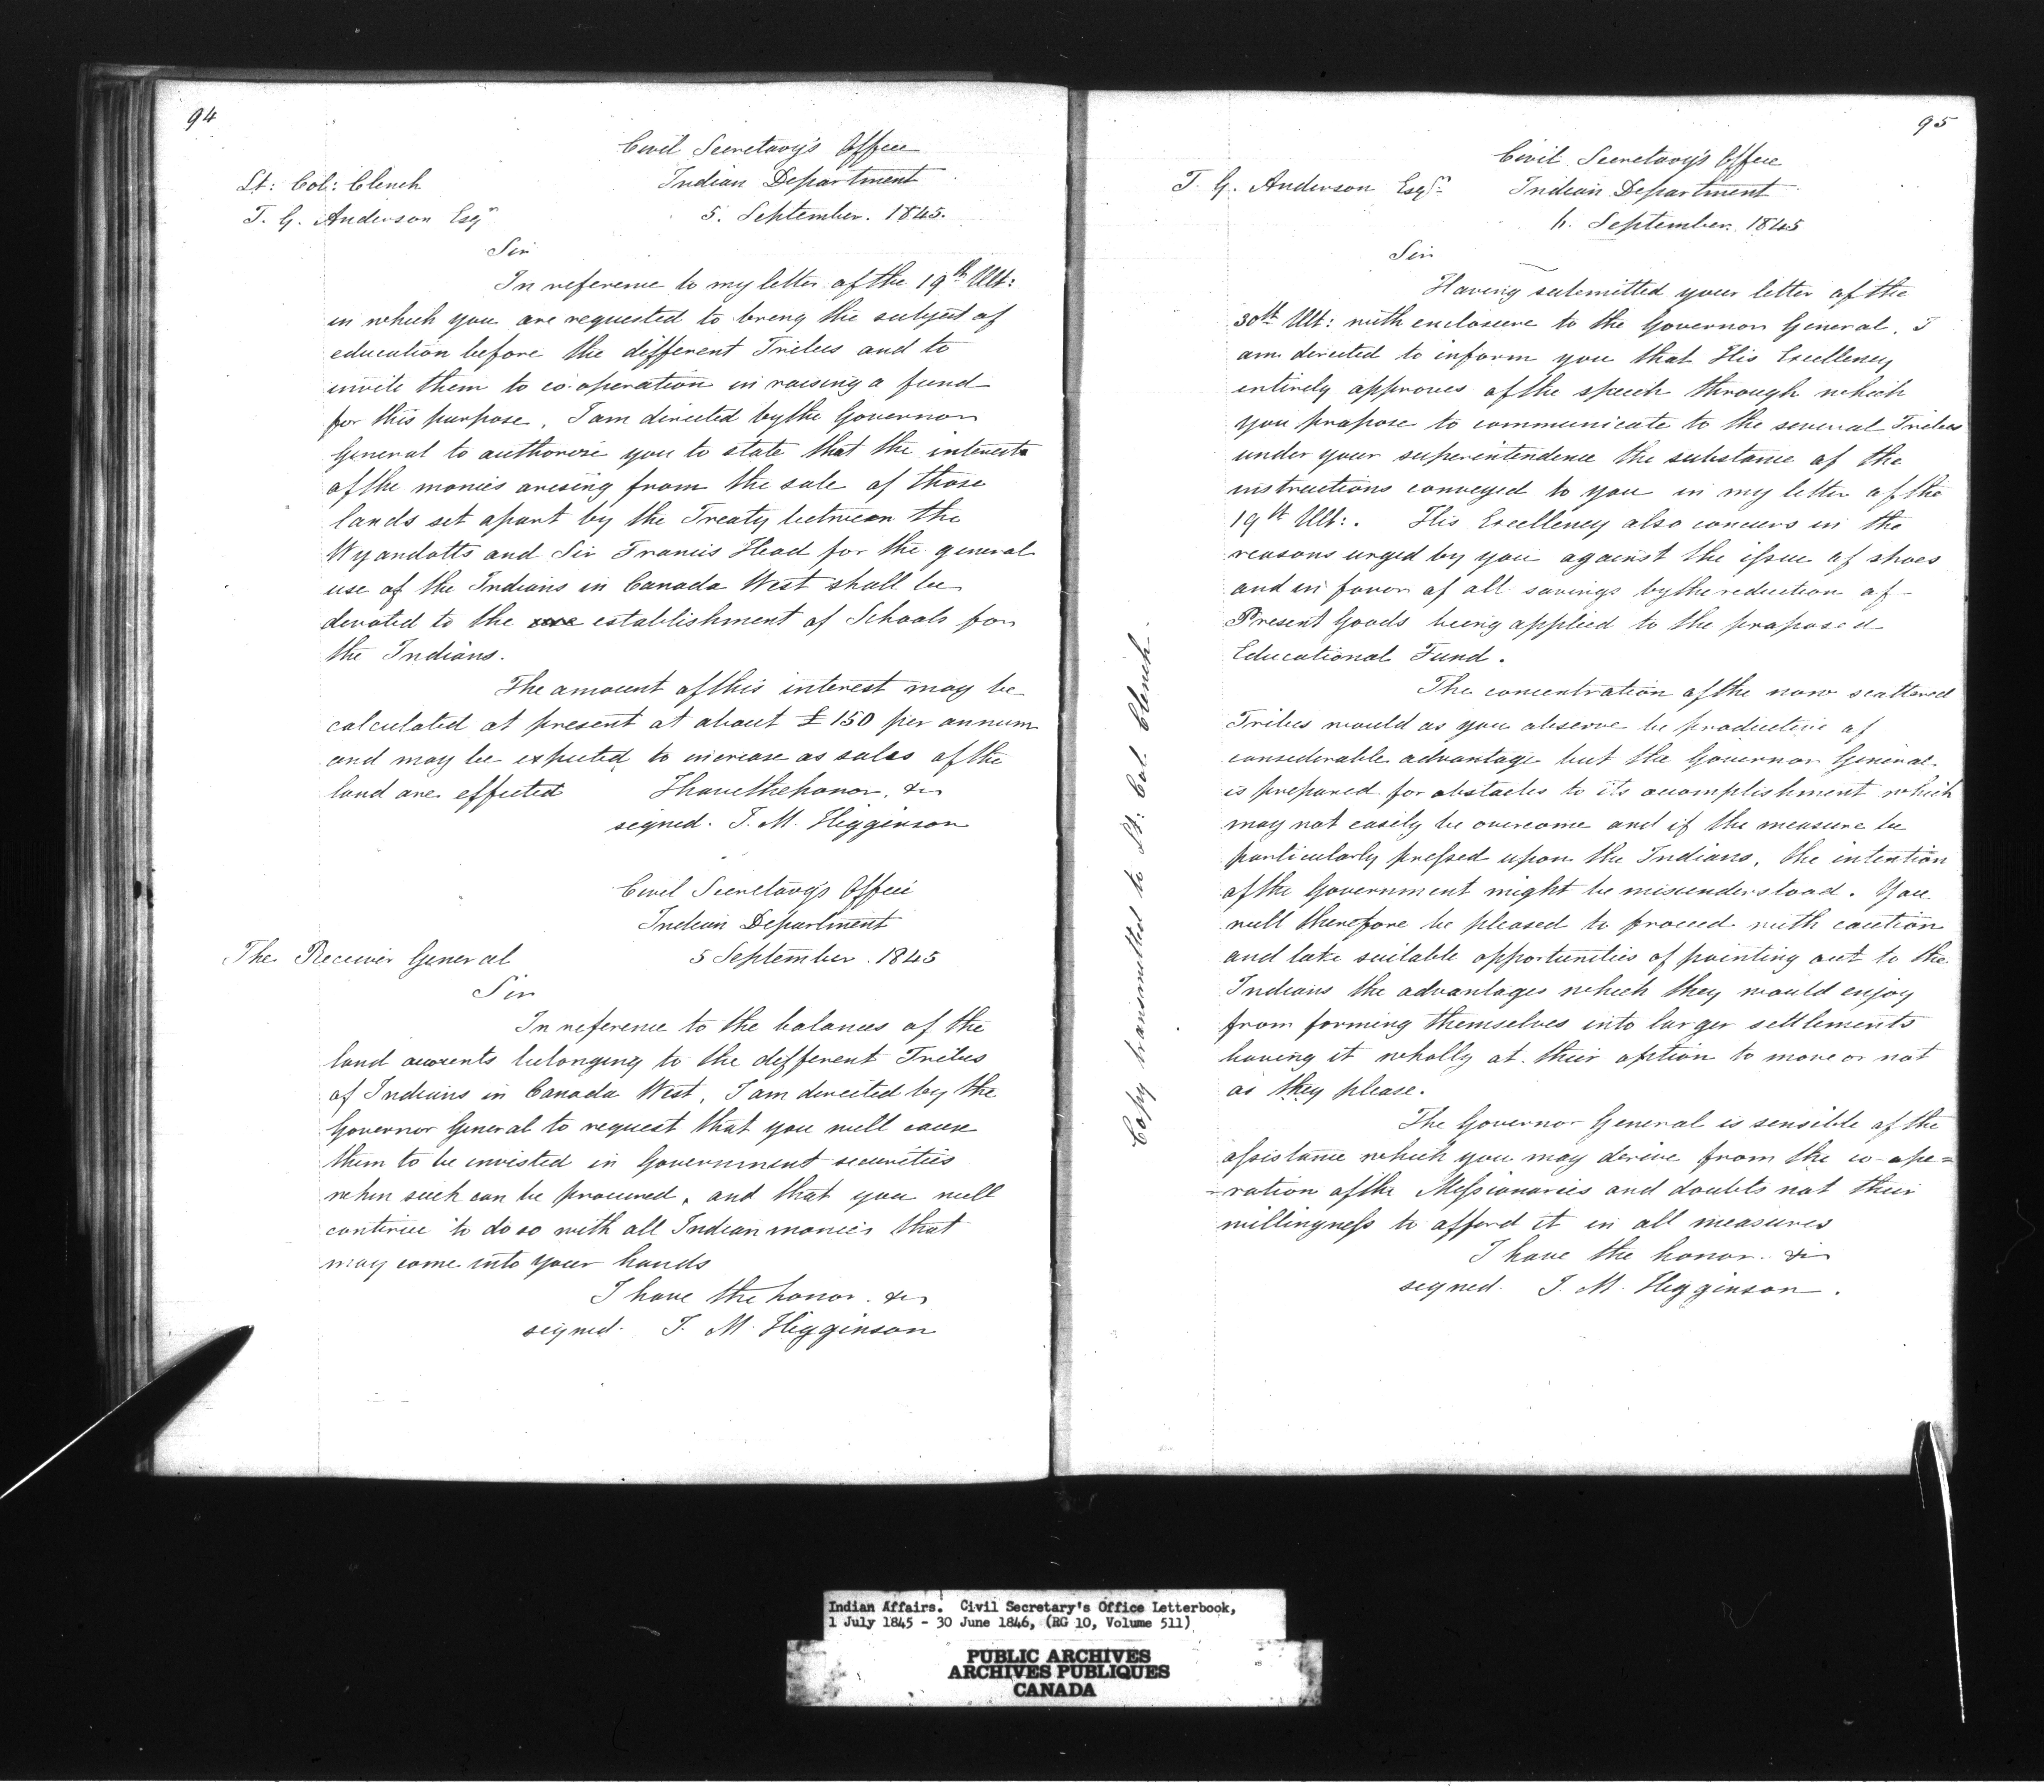 94
Civil Secretary's Office
Lt: Col: Clench Indian Department
T. G. Anderson Esqr 5. September. 1845.
Sir
In reference to my letter of the 19th Ult:
in which you are requested to bring the subject of
education before the different Tribes and to
invite them to co-operation in raising a fund
for this purpose, I am directed by the Governor
General to authorize you to state that the interests
of the monies arising from the sale of those
lands set apart by the Treaty between the
Wyandotts and Sir Francis Head for the general
use of the Indians in Canada West shall be
devoted to the establishment of Schools for
the Indians.
The amount of this interest may be
calculated at present at about £150 per annum
and may be expected to increase as sales of the
land are effected I have the honor, &c
signed. J. M. Higginson
Civil Secretary's Office
Indian Department
The Receiver General 5 September. 1845
Sir
In reference to the balances of the
land accounts belonging to the different Tribes
of Indians in Canada West, I am directed by the
Governor General to request that you will cause
them to be invested in Government securities
when such can be procured, and that you will
continue to do so with all Indian monies that
may come into your hands
I have the honor. &c
signed. J. M. Higginson
95
Civil Secretary's Office
T. G. Anderson Esqr Indian Department
6. September. 1845
Sir
Having submitted your letter of the
30th Ult: with enclosure to the Governor General, I
am directed to inform you that His Excellency
entirely approves of the speech through which
you propose to communicate to the several Tribes
under your superintendence the substance of the
instructions conveyed to you in my letter of the
19th Ult:. His Excellency also concurs in the
reasons urged by you against the issue of shoes
and in favor of all savings by the reduction of
Present Goods being applied to the proposed
Educational Fund.
The concentration of the now scattered
Tribes would as you observe be productive of
considerable advantage but the Governor General
is prepared for obstacles to its accomplishment which
may not easily be overcome and if the measure be
particularly pressed upon the Indians, the intention
of the Government might be misunderstood. You
will therefore be pleased to proceed with caution
and take suitable opportunities of pointing out to the
Indians the advantages which they would enjoy
from forming themselves into larger settlements
leaving it wholly at their option to move or not
as they please.
The Governor General is sensible of the
assistance which you may derive from the co-ope=
=ration of the Missionaries and doubts not their
willingness to afford it in all measures
I have the honor. &c
signed. J. M. Higginson.
Copy transmitted to Lt: Col. Clench.
Indian Affairs. Civil Secretary's Office Letterbook,
1 July 1845 - 30 June 1846, (RG 10, Volume 511)
PUBLIC ARCHIVES
ARCHIVES PUBLIQUES
CANADA